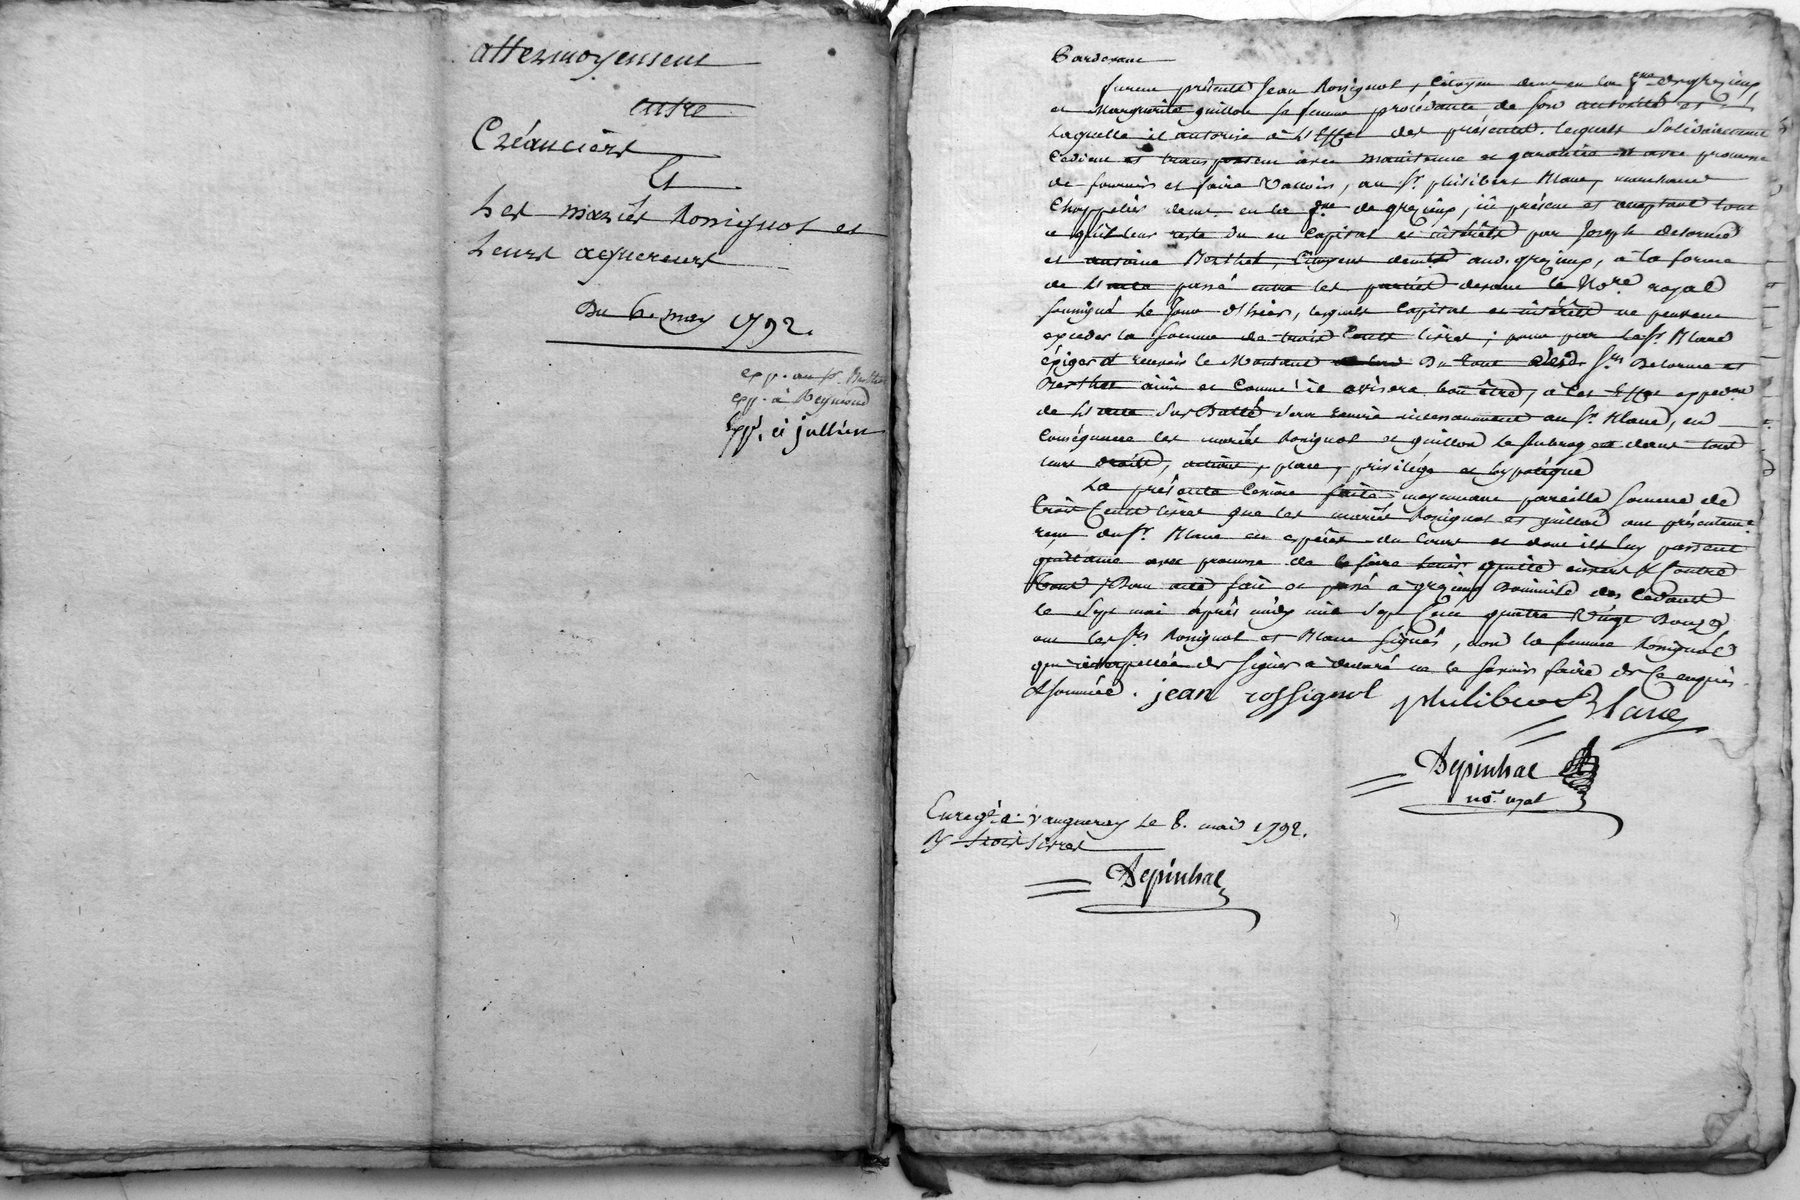 attermoyement
entre
Créanciers
Et
Les mariés Rossignol et
Leurs acquereurs
Du 6. may 1792.
exp. au Sr. Berthet
exp. à Reymond
Exp. à jullien
Pardevant
furent présents Jean Rossignol, Citoyen demt en la de grezieu
et Marguerite guillon sa femme procédante de son autorité et
laquelle il autorise à l'effet des présentes. lesquels solidairement
Cèdent et transportent avec maintenue et garantie et avec promesse
de fournir et faire valloir, au Sr. philibert Blanc, marchand
Chappelier demt. en la de grezieu, ici présent et acceptant tout
ce qu'il leur reste du en Capital et intérêts par Joseph delorme
et antoine Berthet, Citoyens demts aud. grezieu, à la forme
de l'acte passé entre les parties devant le No.re royal
soussigné le Jour d'hier, lesquels Capital et intérêts ne peuvent
exceder la somme de trois Cents livres; pour par led. Sr. Blanc
éxiger et recevoir le Montant Du tout desd. Srs Delorme et
Berthet ainsi et comme il avisera bon être, à cet effet
de l'acte sus Datté sera remise incessamment au Sr. Blanc, en
Conséquence les mariés Rossignol et guillon le subrogent dans tous
leurs droits, actions, place, privilége et hypotéque
La présente Cession faite moyennant pareille somme de
trois Cents livres que les mariés Rossignol et guillon ont présentemt.
reçu du Sr. Blanc en espèces du Cours et dont ils luy passent
quittance avec promesse de le faire tenir quitte envers & Contre
tous / Dont acte fait et passé à grezieu Domicile des Cédants
le sept mai après midy mil sept Cent quatre vingt Douze
ont les Srs Rossignol et Blanc signés, non la femme Rossignol
qui interpellée de signer a declaré ne le savoir faire de Ce enquise
& sommée. jean rossignol philibert Blanc
Depinhac
no. royal
Enregé. à vaugneray Le 8. mai 1792.
R/ trois livres
Depinhac